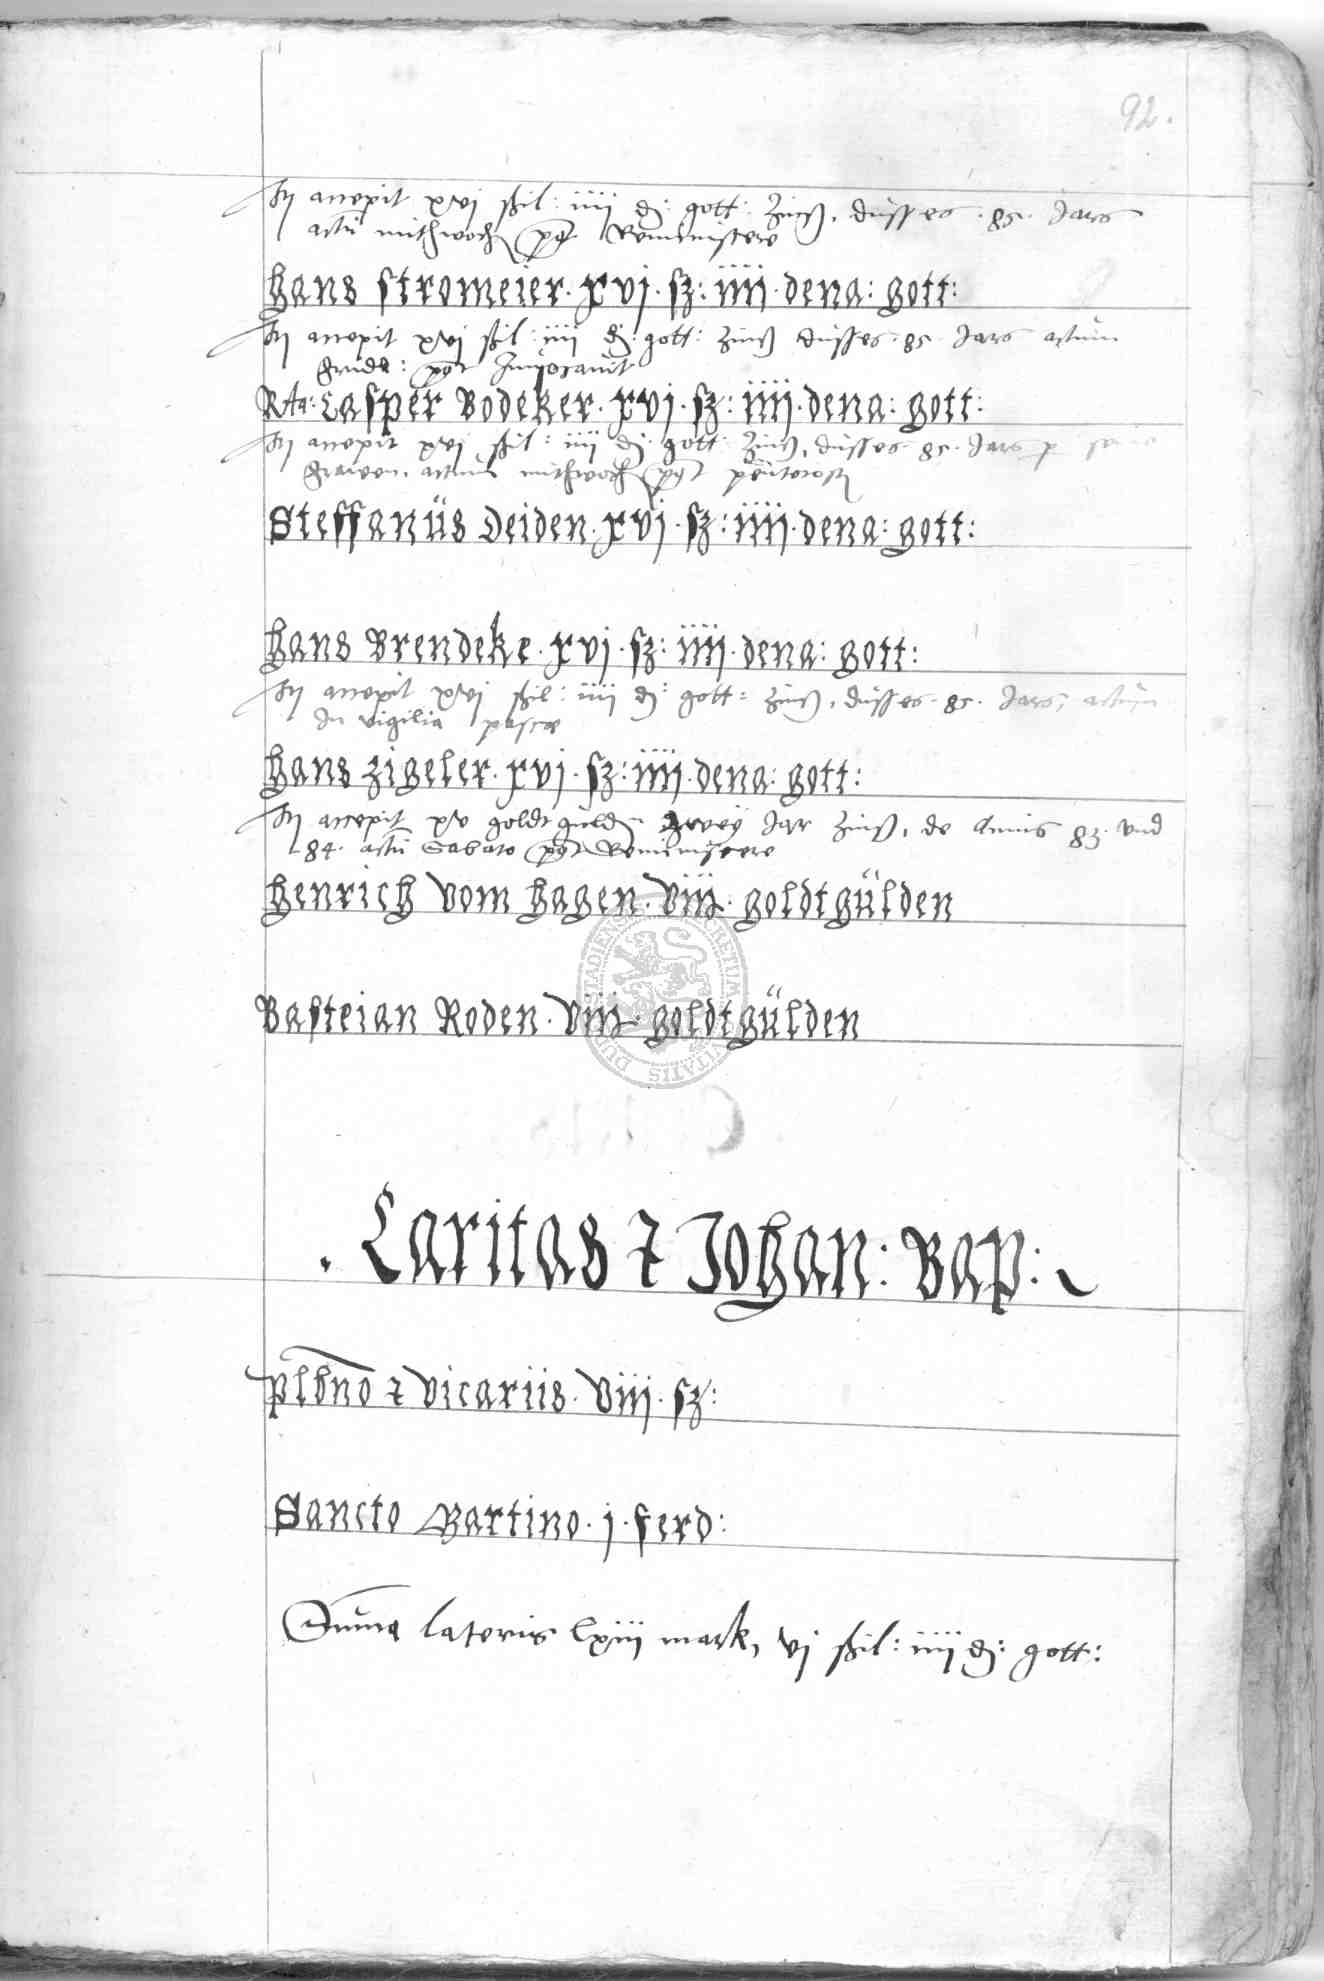 92.
accepit xvj ßil: iiij d: gott: Zinß, dusses .85. Jars
actu mithwoch post Reminiscere
Hans Stromeier. xvj. sz: iiij. dena: Gott:
accepit xvj ßil: iiij d: gott: Zinß dusses .85. Jars actum
post Invocavit
Casper Bodeker. xvj. sz: iiij. dena: Gott:
accepit xvj ßil: iiij d: gott: Zinß, dusses .85. Jars p
frawen. actum mithwoch post
Steffanüs Deiden. xvj. sz: iiij. dena: gott:
Hans Brendeke. xvj. sz: iiij. dena: Gott:
accepit xvj ßil: iiij d: gott: Zinß, dusses .85. Jars, actum
In vigilia pasce
Hans Zigeler. xvj. sz: iiij. dena: Gott:
accepit xv goldtguld zwey Jar Zinß, de Annis 83. vnd
84. actu Sabato post Reminiscere
Henrich vom Hagen. viij. Goldtgülden
Basteian Roden. viij. Goldtgülden
SECRETUM CIVITATIS DUDERSTADIENSIS
. Caritas ⁊ Johan: Bap:
plbno ⁊ vicariis. viij. sz:
Sancto Martino. j. ferd:
Suma lateris lxiij mark, vj ßil: iiij d: gott: